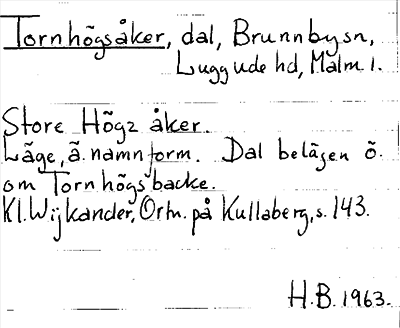 Tornhögsåker, dal, Brunnby sn,
Luggude hd, Malm. l.
Store Högz åker.
Läge, ä. namnform. Dal belägen ö.
om Tornhögsbacke.
Kl. Wijkander, Ortn. på Kullaberg, s. 143.
H.B. 1963.